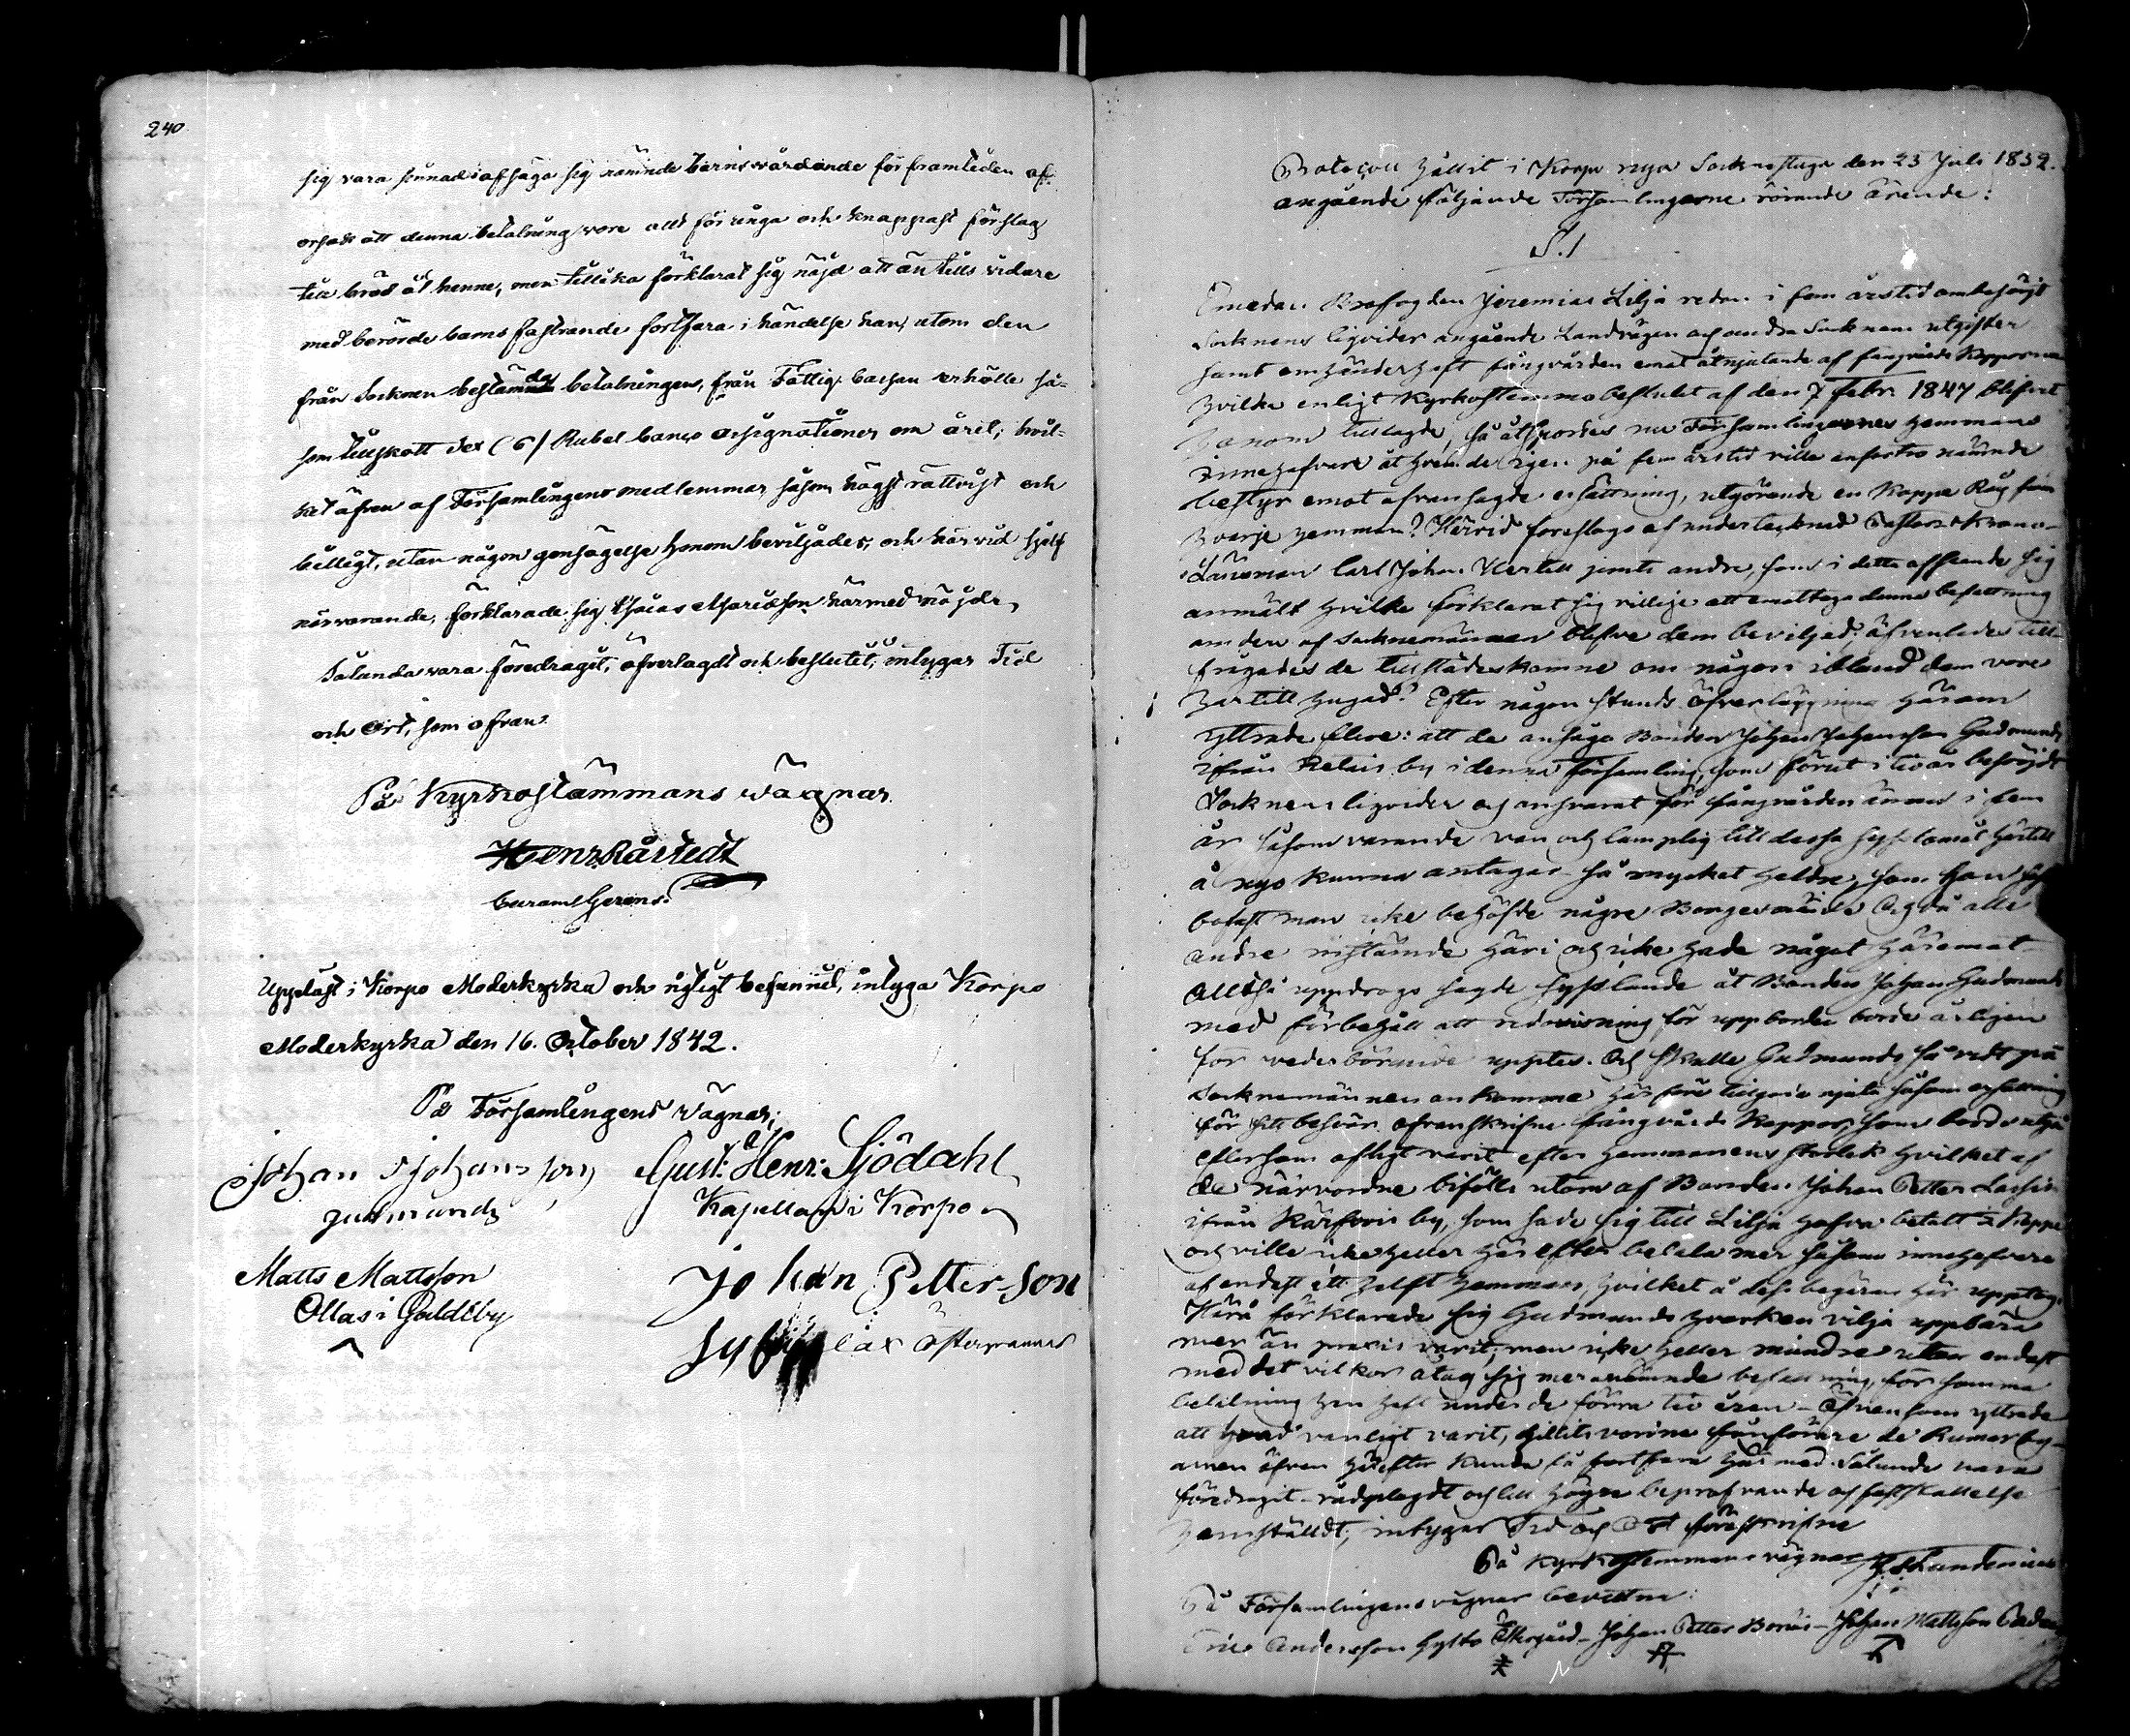 240
sig vara sinnad afsäga sig nämnde barnsvårdande för framtiden af
orsak att denna betalning vore allt för ringa och knappast förslag
till bröd åt henne, men tillika förklarat sig nöjd att än tills vidare
med berörde barns fostrande fortfara i händelse han, utom den
från Socknen bestämda betalningen, från Fattig-Cassan erhölle så-
som tillskott sex (6) Rubel banco assignationer om året; hvil-
ket äfven af Församlingens medlemmar såsom högst rättvist och
billigt, utan någon gensägelse honom beviljades; och härvid sjelf
närvarande, förklarade sig härmed nöjd.
Sålunda vara föredraget, öfverlagdt och beslutet, intygar Tid
och Ort, som ofvan.
På Kyrkostämmans vägnar

Uppläst i Korpo Moderkyrka och riktigt befunnit, intyga Korpo
Moderkyrka den 16. October 1842.
På Församlingens vägnar;
Johan Johansson Gust: Henr: Sjödahl
Gudmunds Kapellan i Korpo
Matts Mattsson Johan Petterson
Ollas i Galtby Österman
Protocoll hållit i Korpo nya Socknestuga den 25 Juli 1852.
angående följande Församlingarne rörande ärende:
§.1
Emedan Krofogden Jeremias Lilja redan i fem årstid ombesörjt
Socknens liqvider angående Landvägen och andra Socknens utgifter
samt omhänderhaft fångvården emot åtnjutande af fångvårds Kapporna
hvilka enligt Kyrkostemmo beslutet af den 7 Febr. 1847 blifvit
honom tillagde, så åtspordes nu Församlingarnes hemmans
innehafvare åt hvem de igen på fem årstid ville anförtro nämnde
bestyr emot ofvansagde ersättning, utgörande en Kappe Råg från
hvarje hemman? Härvid föreslogs af undertecknad Pastor Krono-
Länsman Carl Johan jemte andre, som i detta afseende sig
anmält hvilke förklarat sig villige att emottaga denna befattning
om den af Socknemännen blefve dem beviljad; äfvenledes till-
frågades de tillstädeskomne om någon ibland dem vore
hartill hugad? Efter någon stunds öfverläggning härom
yttrade flere: att de ansågo Bonden Johan Johansson Gudmunds
ifrån Retais by i denna Församling, som förut i tio år besörjdt
Socknens liqvider och ansvarat för fångvården ännu i fem
år såsom varande van och lämplig till dessa sysslomål härtill
å nyo kunna antagas så mycket heldre, som han
bofast man icke behöfde några Borgesmän. Och då alla
andre instämde häri och icke hade något häremot
Alltså uppdrogs sagde sysslande åt Bonden Johan Gudmunds
med förbehåll att redovisning för uppbörden borde årligen
för vederbörande upptes. Och skulle Gudmunds så vidt på
Socknemännen ankomme härföre tillgodo njuta såsom ersättning
för sitt besvär ofvanskrifne fångvårds Kappor, som borde utgå
eftersom osligt varit efter hemmanens storlek hvilket af
de närvordne bifölls utom af Bonden Johan Petter
ifrån Kärfvois by, som sade sig till Lilja hafva betalt ½ Kappe
och ville icke heller härefter betala mer såsom innehafvare
af endast ett halft hemman, hvilket å dess begäran här upptogs.
Härå förklarade sig Gudmunds hvarken vilja uppbära
mer än praxis varit, men icke heller mindre utan endast
med det vilkor åtog sig meranämnde befattning, för samma
betalning han haft under de förra tio åren. Äfvensom yttrade
att hvad vanligt varit,
äfven härefter kunde få fortfara härmed. Sålunda vara
föredragit rådplagdt och till högre bepröfvande och fastställelse
hemställdt; intygar Tid och Ort föreskrifne
På Kyrkostemmans vägnar
På Församlingens vägnar bevittna:
Eric Andersson Hytto Johan Petter Johan Mattsson